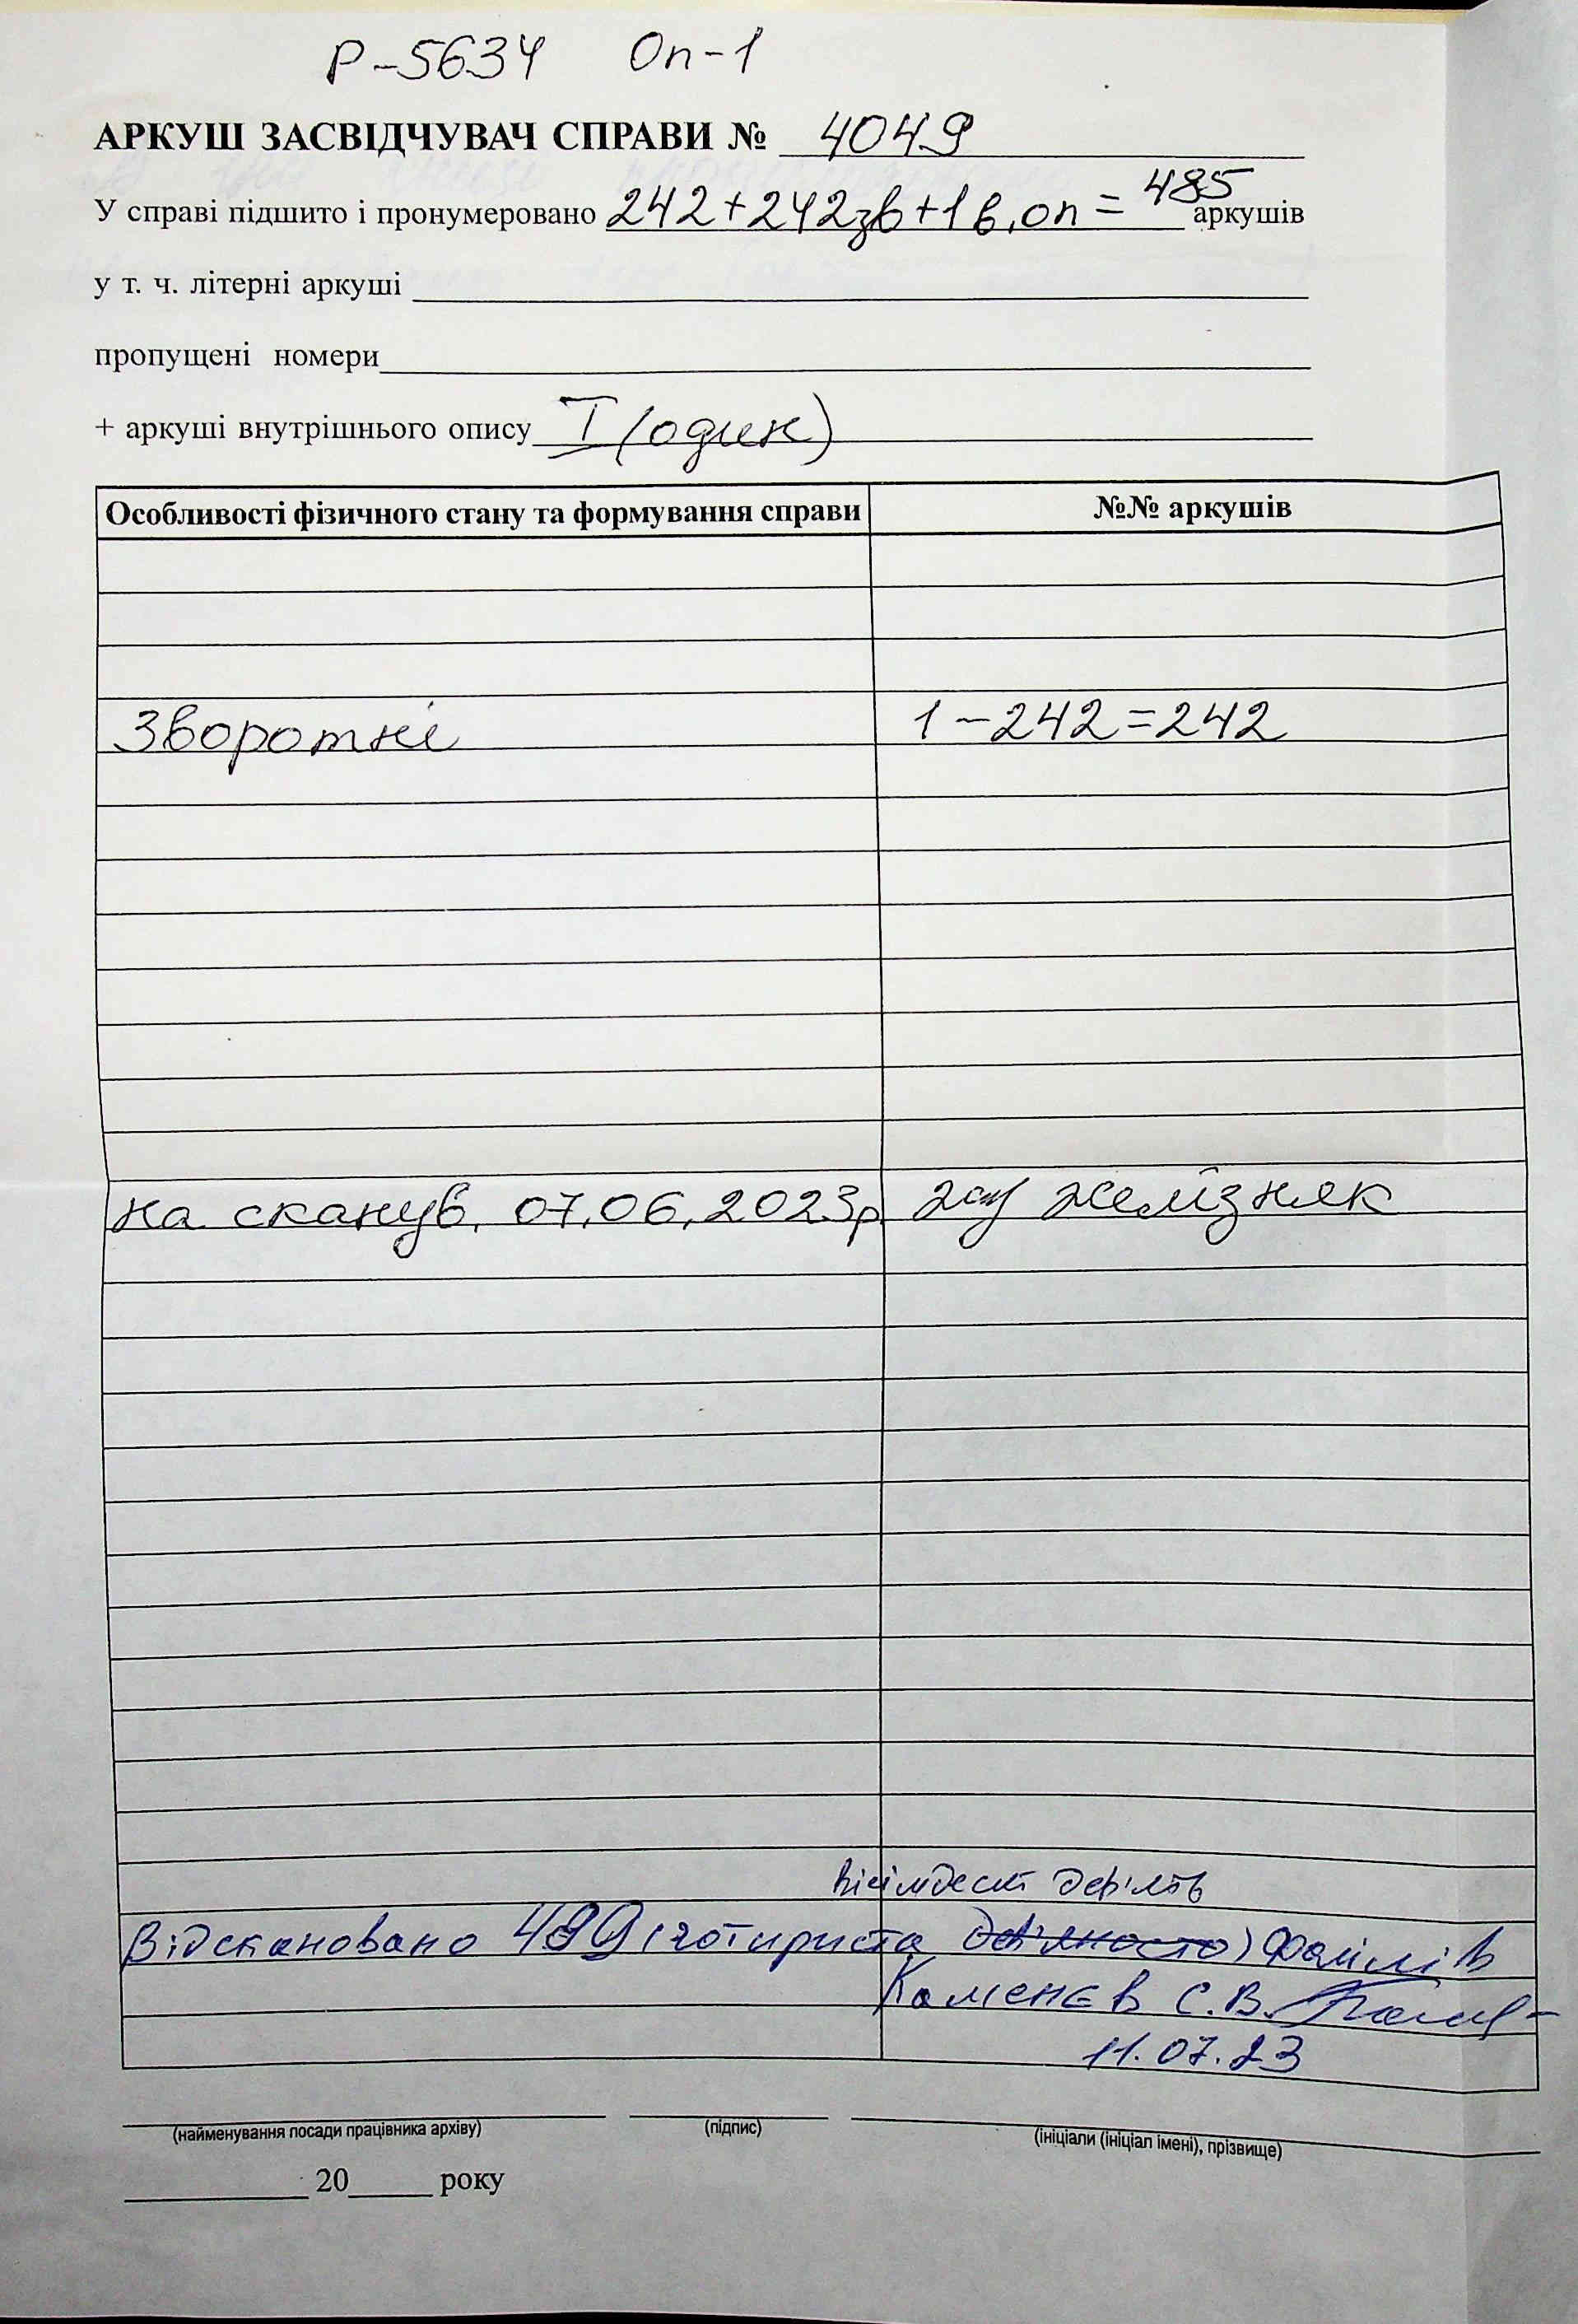 Р-5634 Оп-1
АРКУШ ЗАСВІДЧУВАЧ СПРАВИ № 4049
У справі підшито і пронумеровано 242+242зв+1в.оп = 485 аркушів
у т. ч. літерні аркуші
пропущені номери
+ аркуші внутрішнього опису I (один)
Особливості фізичного стану та формування справи №№ аркушів
Зворотні 1-242=242
на сканув. 07.06.2023р Желізняк
вісімдесят дев'ять
Відскановано 489 (чотириста дев'яносто) файлів
Каменєв С.В.
11.07.23
(найменування посади працівника архіву) (підпис) (ініціали (ініціал імені), прізвище)
20 року